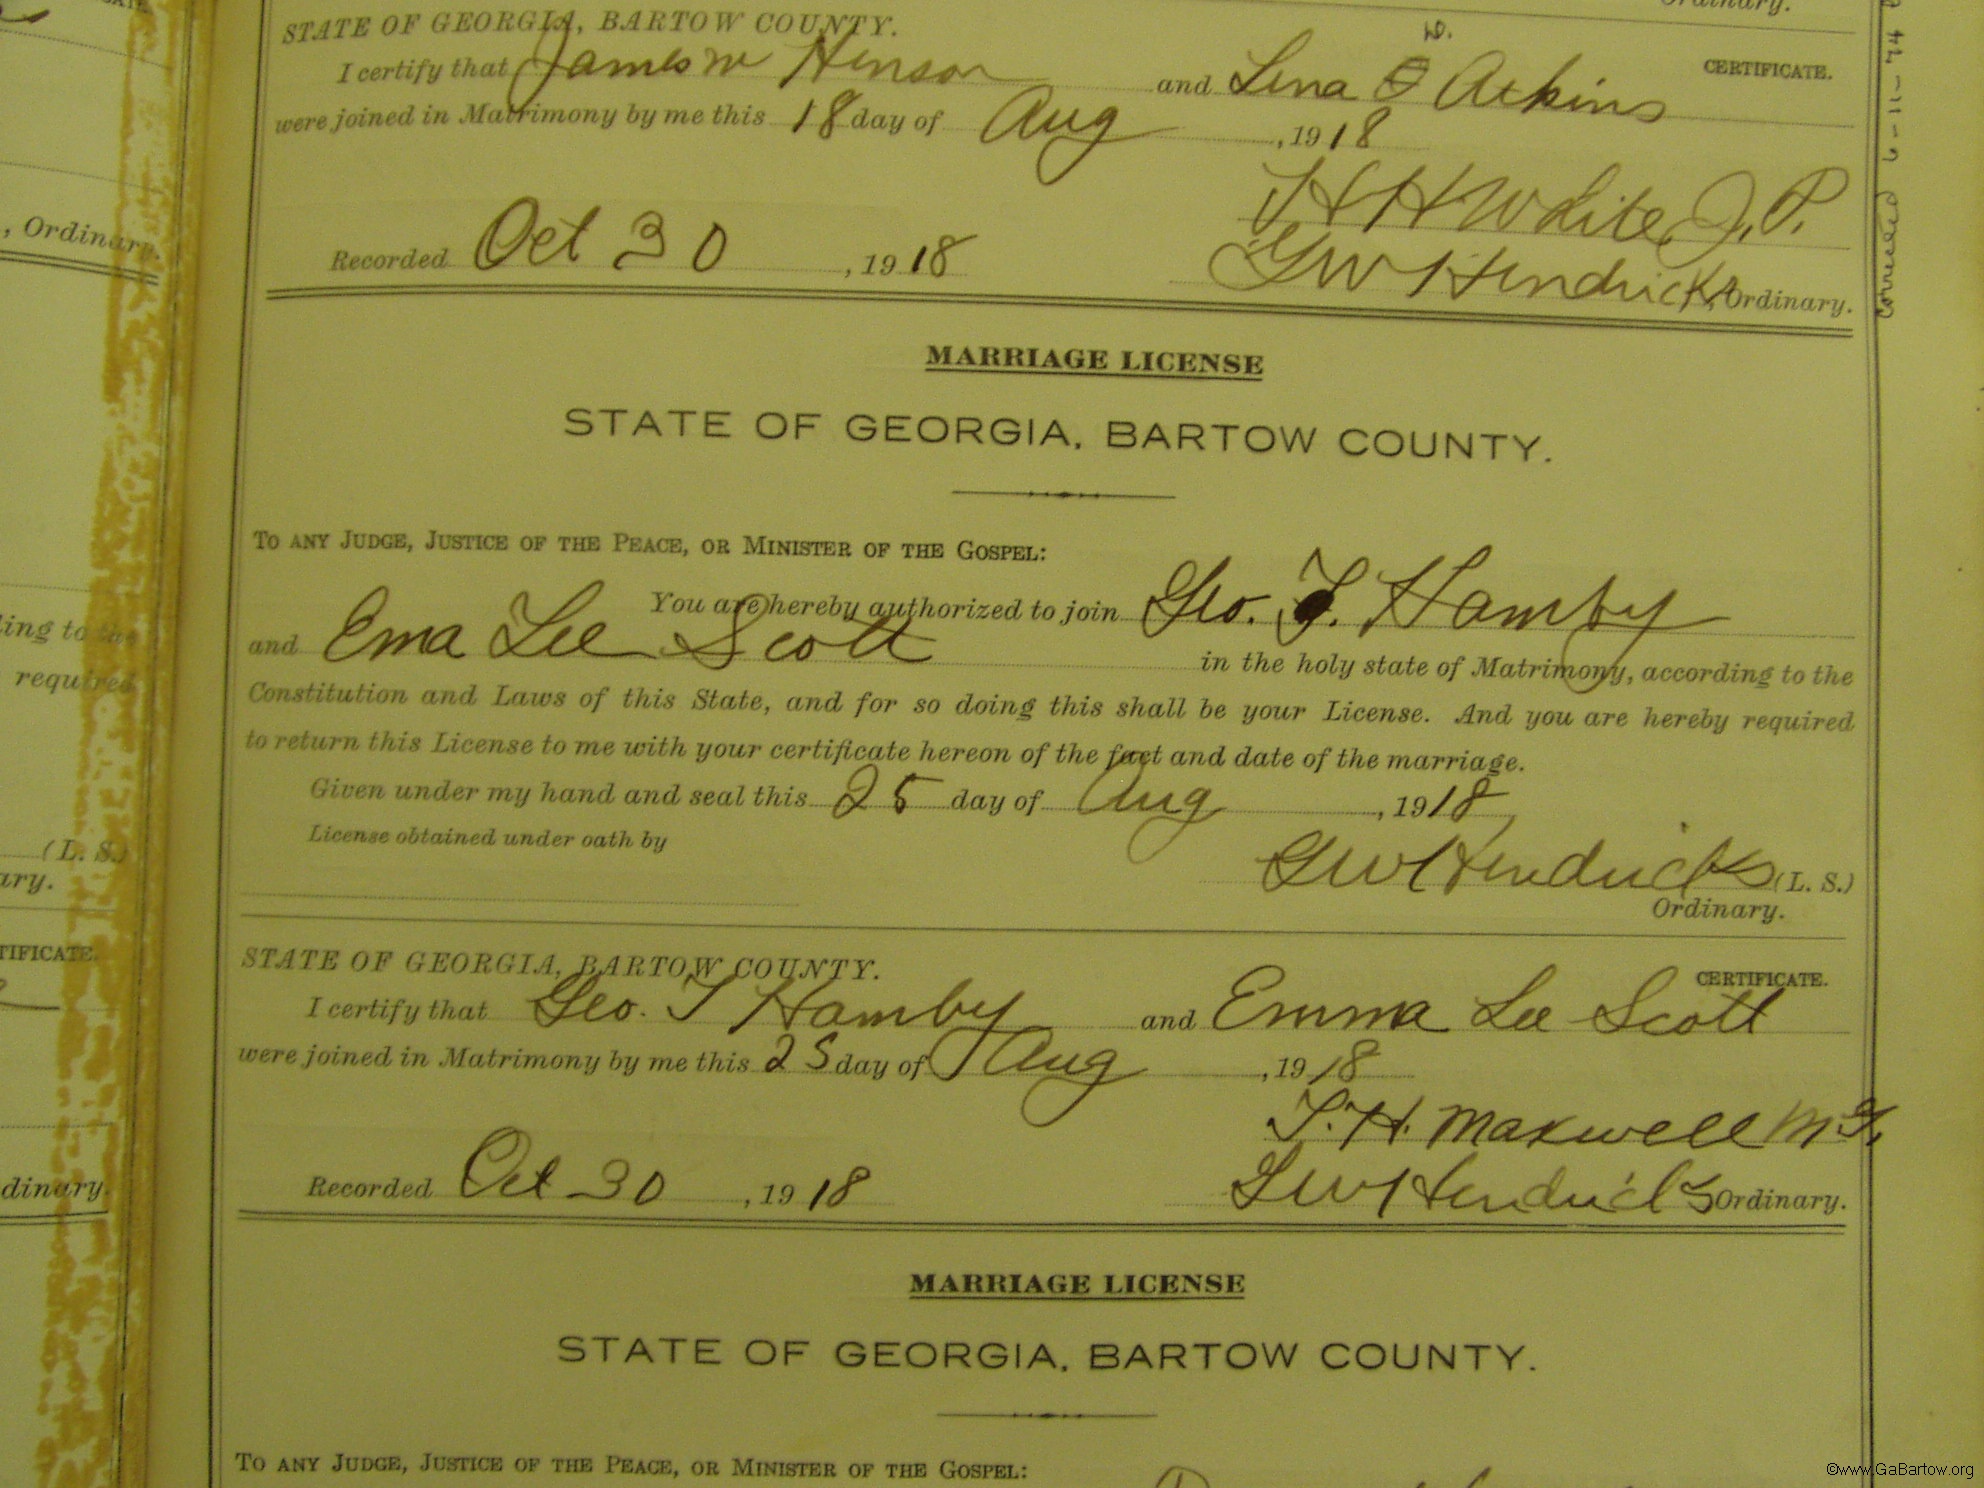 Ordinary.
STATE OF GEORGIA, BARTOW COUNTY.
CERTIFICATE.
I certify that James W Henson and Lena E Atkins
B.
were joined in Matrimony by me this 18 day of Aug , 1918
H H White, J. P.
Recorded Oct 30 , 1918
G W Hendricks, Ordinary.
corrected 6-11-74
MARRIAGE LICENSE
STATE OF GEORGIA, BARTOW COUNTY.
TO ANY JUDGE, JUSTICE OF THE PEACE, OR MINISTER OF THE GOSPEL:
You are hereby authorized to join Geo. T. Hamby
and Ema Lee Scott in the holy state of Matrimony, according to the
Constitution and Laws of this State, and for so doing this shall be your License. And you are hereby required
to return this License to me with your certificate hereon of the fact and date of the marriage.
Given under my hand and seal this 25 day of Aug , 1918
License obtained under oath by
G W Hendricks (L. S.)
Ordinary.
STATE OF GEORGIA, BARTOW COUNTY.
CERTIFICATE.
I certify that Geo. T Hamby and Emma Lee Scott
were joined in Matrimony by me this 25 day of Aug , 1918
T. H. Maxwell M. G.
Recorded Oct 30 , 1918
G W Hendricks Ordinary.
MARRIAGE LICENSE
STATE OF GEORGIA, BARTOW COUNTY.
TO ANY JUDGE, JUSTICE OF THE PEACE, OR MINISTER OF THE GOSPEL:
, Ordinary.
ing to the
required
(L. S.)
ary.
TIFICATE.
dinary.
©www.GaBartow.org